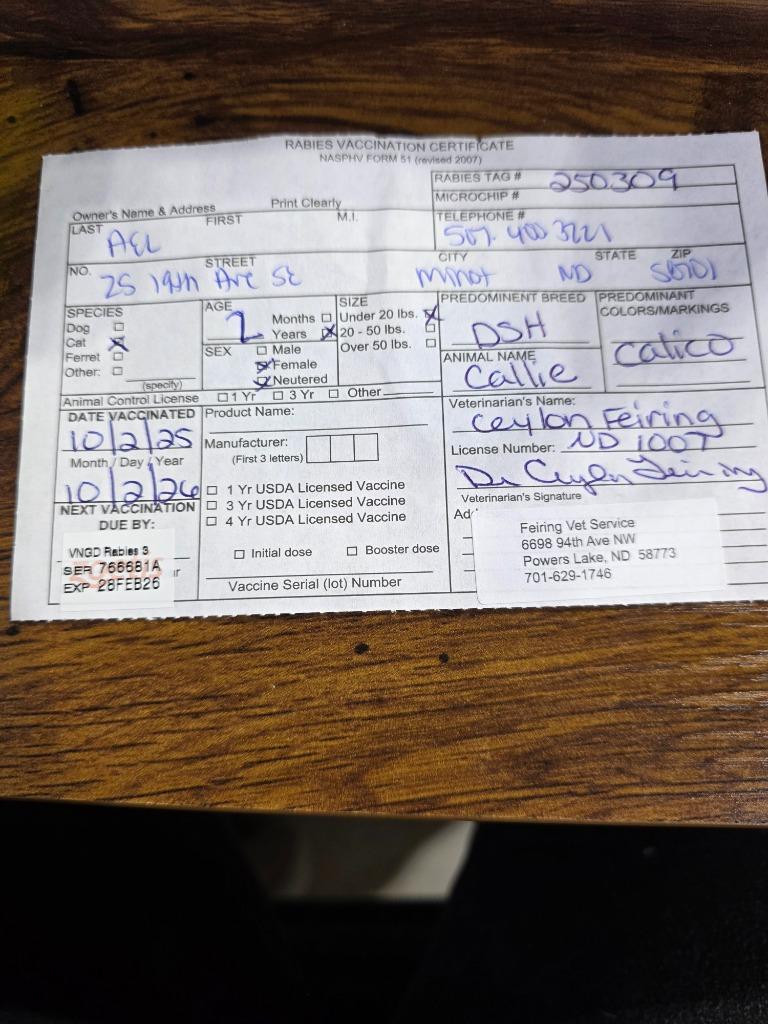 RABIES VACCINATION CERTIFICATE
NASPHV FORM 51 (revised 2007)
RABIES TAG # 250309
MICROCHIP #
Owner's Name & Address Print Clearly
LAST FIRST M.I.
TELEPHONE #
507. 400 3221
NO. STREET CITY STATE ZIP
25 19th Ave SE Minot ND 58701
SPECIES
Dog
Cat
Ferret
Other:
(specify)
AGE
2
Months
Years
SEX
Male
Female
Neutered
SIZE
Under 20 lbs.
20 - 50 lbs.
Over 50 lbs.
PREDOMINENT BREED
DSH
ANIMAL NAME
Callie
PREDOMINANT
COLORS/MARKINGS
Calico
Animal Control License 1 Yr 3 Yr Other
DATE VACCINATED
10/2/25
Month / Day / Year
10/2/26
NEXT VACCINATION
DUE BY:
VNGD Rabies 3
SER 766681A
EXP 28FEB26
Product Name:
Manufacturer:
(First 3 letters)
1 Yr USDA Licensed Vaccine
3 Yr USDA Licensed Vaccine
4 Yr USDA Licensed Vaccine
Initial dose Booster dose
Vaccine Serial (lot) Number
Veterinarian's Name:
Ceylon Feiring
License Number: ND 1007
Dr Ceylon Feiring
Veterinarian's Signature
Feiring Vet Service
6698 94th Ave NW
Powers Lake, ND 58773
701-629-1746